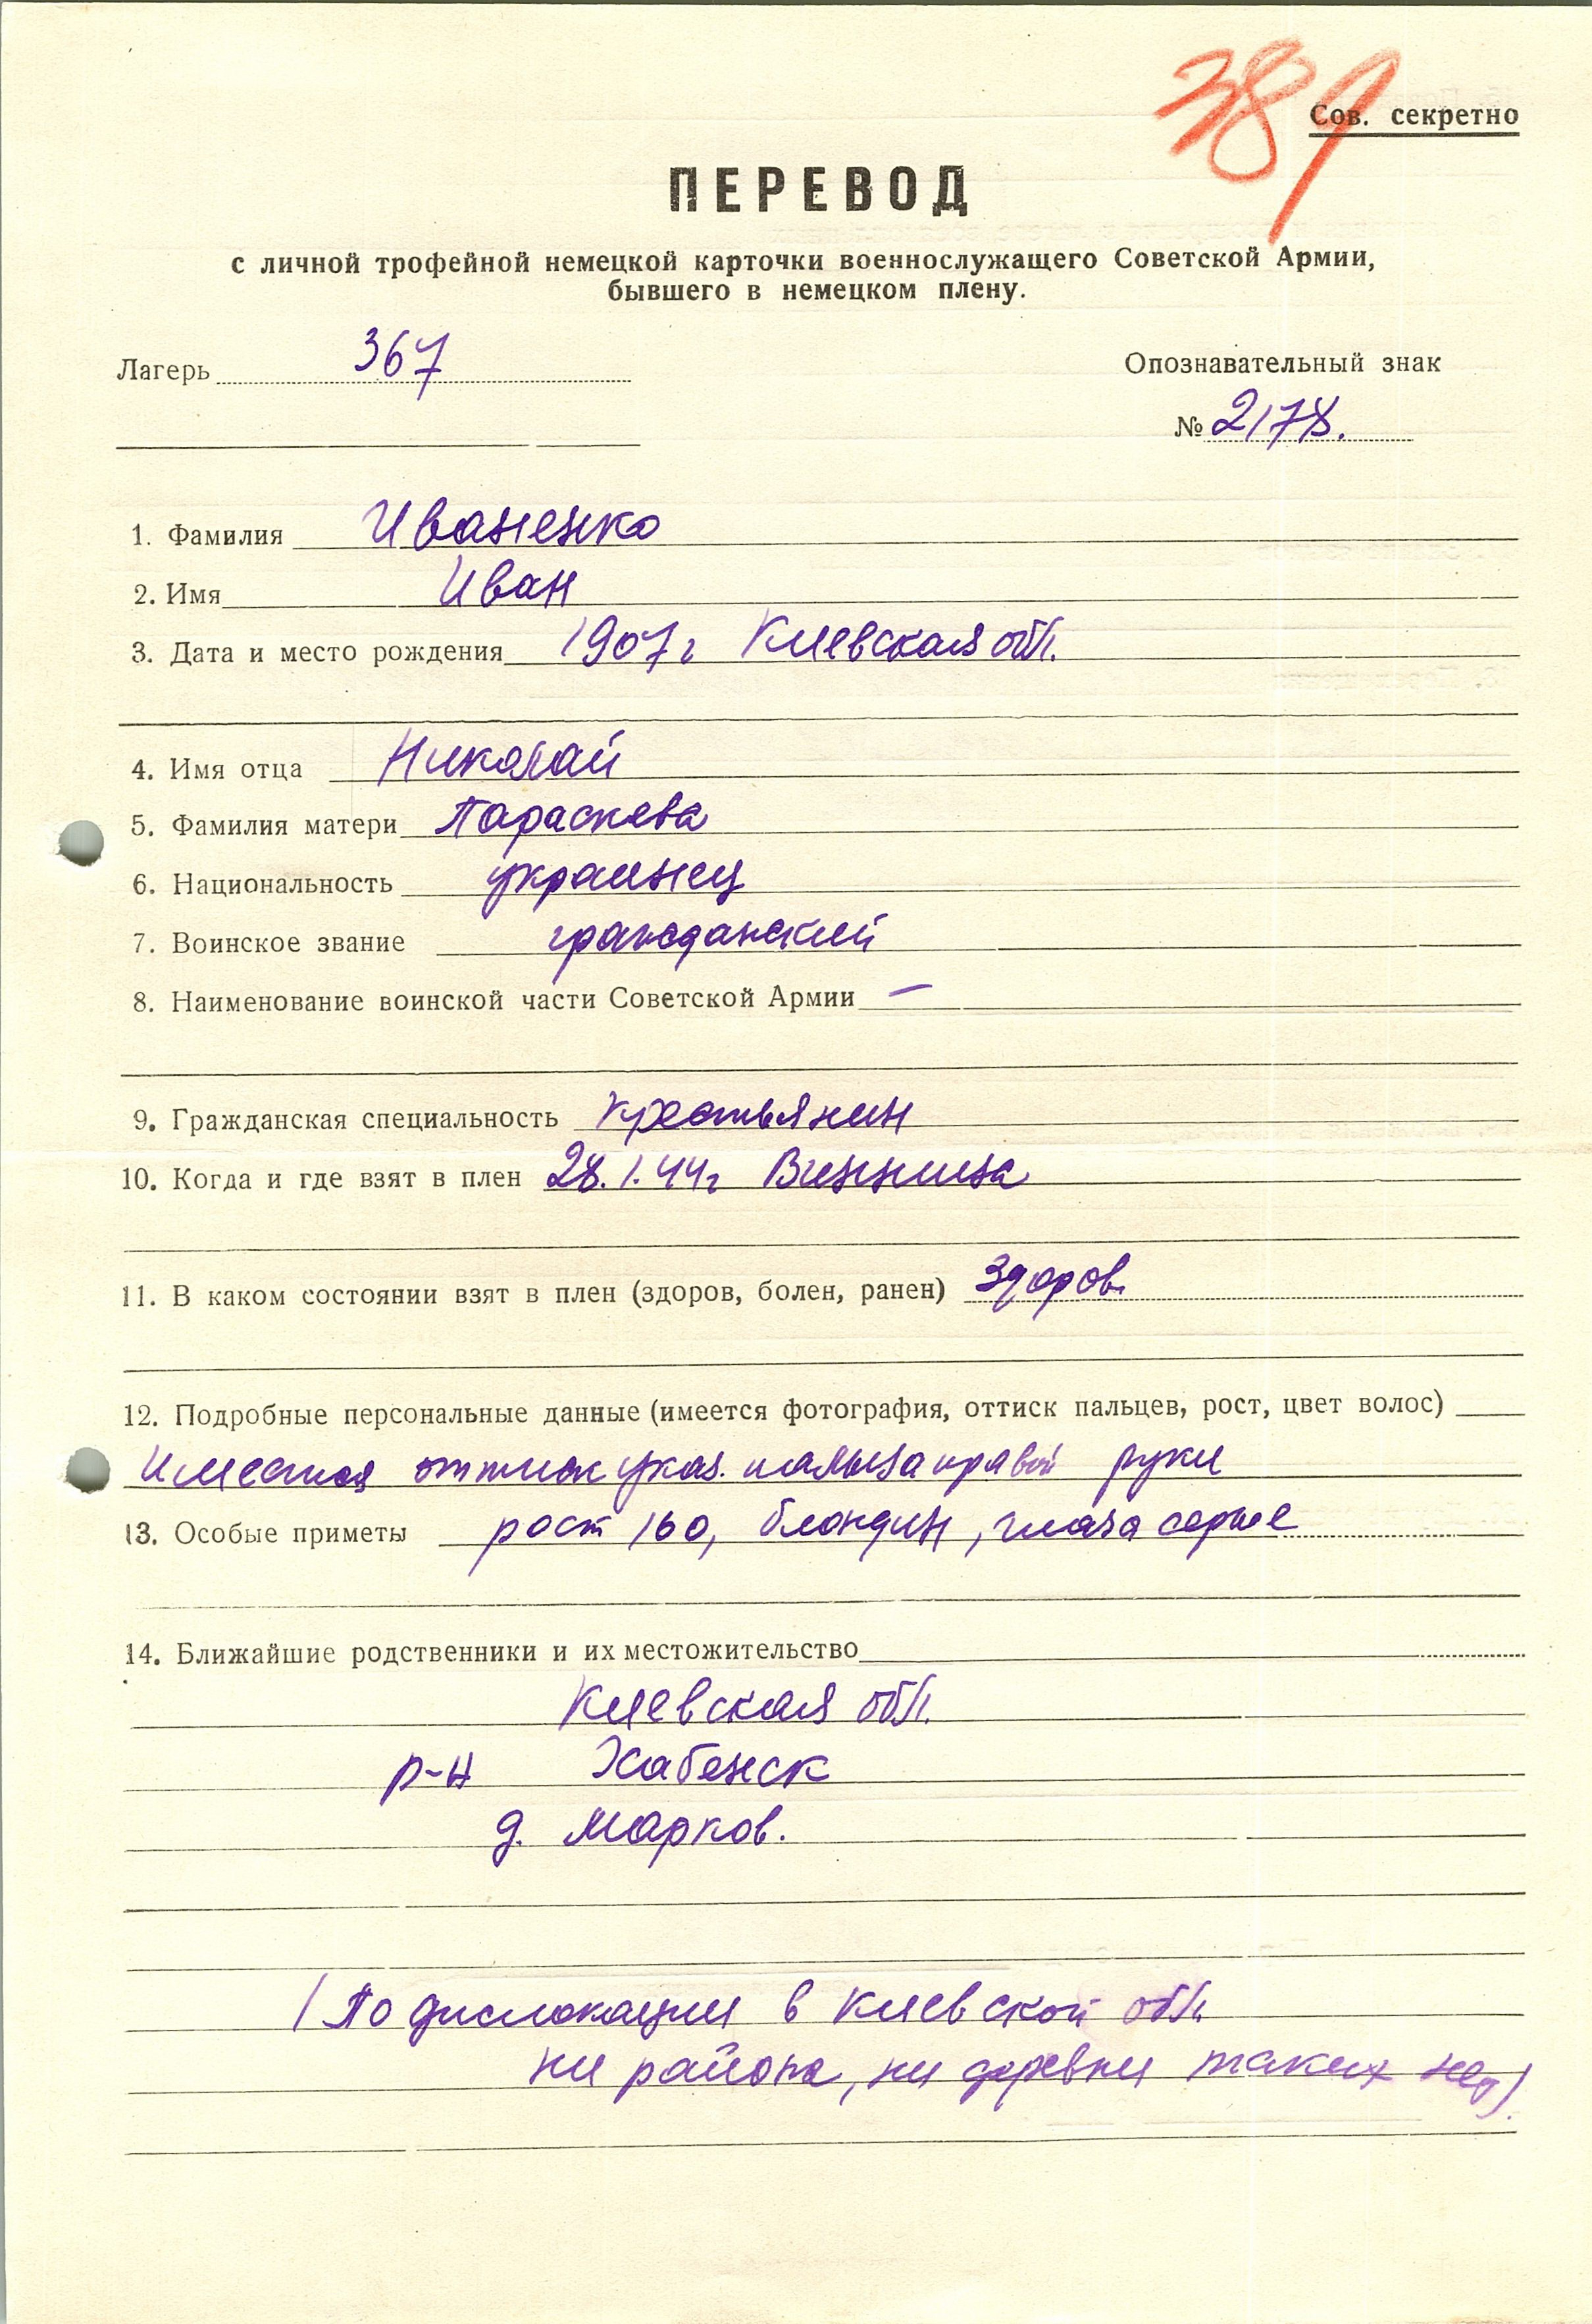 389
Сов. секретно
ПЕРЕВОД
с личной трофейной немецкой карточки военнослужащего Советской Армии,
бывшего в немецком плену.
Лагерь 367
Опознавательный знак
№ 2178.
1. Фамилия Иваненко
2. Имя Иван
3. Дата и место рождения 1907 г Киевская обл.
4. Имя отца Николай
5. Фамилия матери Параскева
6. Национальность украинец
7. Воинское звание гражданский
8. Наименование воинской части Советской Армии —
9. Гражданская специальность крестьянин
10. Когда и где взят в плен 28.1.44г Винница
11. В каком состоянии взят в плен (здоров, болен, ранен) здоров.
12. Подробные персональные данные (имеется фотография, оттиск пальцев, рост, цвет волос)
Имеется оттиск указ. пальца правой руки
13. Особые приметы рост 160, блондин, глаза серые
14. Ближайшие родственники и их местожительство
Киевская обл.
р-н Хабенск
д. Марков.
(По дислокации в Киевской обл.
ни района, ни деревни таких нет).